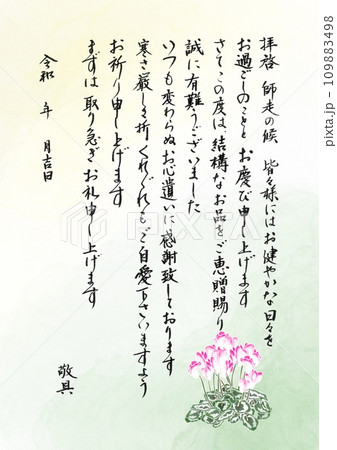 拝啓 師走の候 皆々様にはお健やかな日々を
お過ごしのことと お慶び申し上げます
さてこの度は、結構なお品をご恵贈賜り
誠に有難うございました
いつも変わらぬお心遣いに感謝致しております
寒さ厳しき折くれぐれもご自愛下さいますよう
お祈り申し上げます
まずは取り急ぎお礼申し上げます
敬具
令和 年 月吉日
PIXTA
pixta.jp - 109883498